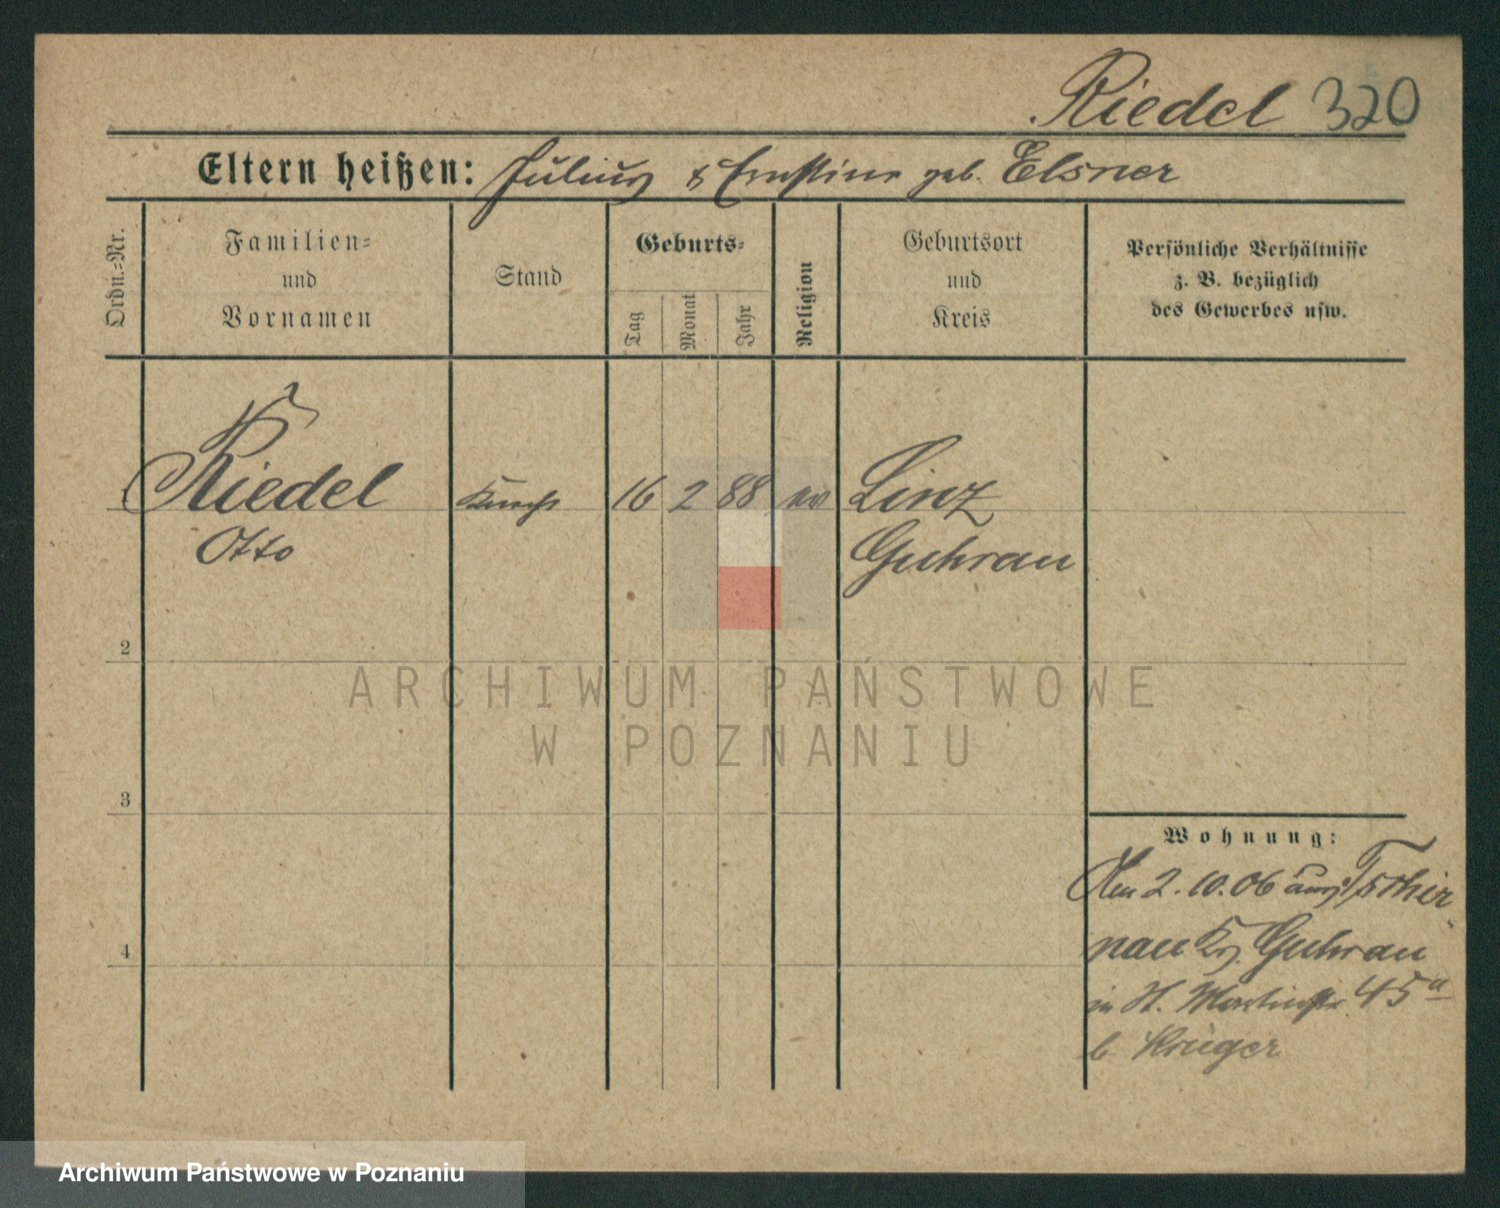 Riedel 320
Eltern heißen: Julius & Ernstine geb. Elsner
Ordn.=Nr.
Familien=
und
Vornamen
Stand
Geburts=
Tag
Monat
Jahr
Religion
Geburtsort
und
Kreis
Persönliche Verhältnisse
z. B. bezüglich
des Gewerbes usw.
Riedel Knecht 16 2 88 ev Linz
Otto Guhrau
2
3
4
Wohnung:
Den 2.10.06 aus Tschir-
nau Krs. Guhrau
in St. Martinstr. 45a
b. Krüger
ARCHIWUM PAŃSTWOWE
W POZNANIU
Archiwum Państwowe w Poznaniu